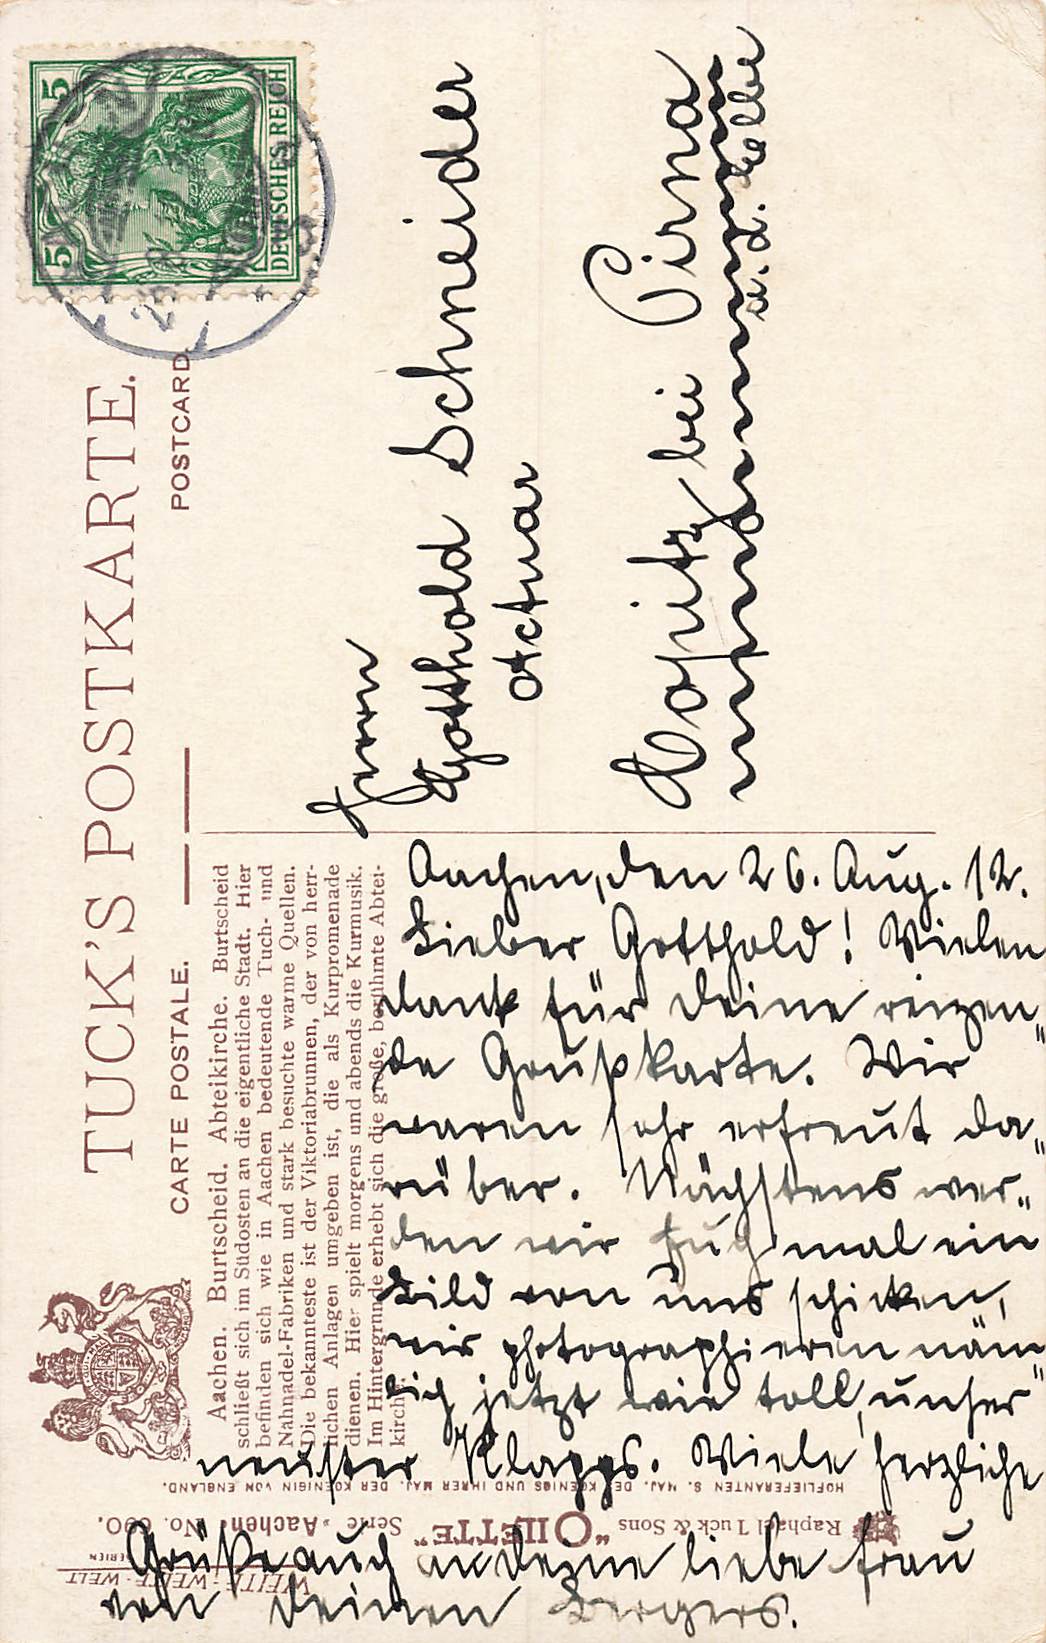 5 5
DEUTSCHES REICH
TUCK'S POSTKARTE.
CARTE POSTALE.
POSTCARD
Aachen. Burtscheid. Abteikirche. Burtscheid
schließt sich im Südosten an die eigentliche Stadt. Hier
befinden sich wie in Aachen bedeutende Tuch- und
Nähnadel-Fabriken und stark besuchte warme Quellen.
Die bekannteste ist der Viktoriabrunnen, der von herr-
lichen Anlagen umgeben ist, die als Kurpromenade
dienen. Hier spielt morgens und abends die Kurmusik.
Im Hintergrunde erhebt sich die große, berühmte Abtei-
kirche.
Herrn
Gotthold Schneider
Actuar
Copitz bei Pirna
a. d. Elbe
Aachen, den 26. Aug. 12.
Lieber Gotthold! Vielen
Dank für Deine reizen"
de Grußkarte. Wir
waren sehr erfreut da"
rüber. Nächstens wer"
den wir Euch mal ein
Bild von uns schicken,
wir photographieren näm"
lich jetzt wie toll, unser
neuster Klapps. Viele herzliche
Grüße auch an Deine liebe Frau
von Deinen Bergers.
HOFLIEFERANTEN S. MAJ. DES KOENIGS UND IHRER MAJ. DER KOENIGIN VON ENGLAND.
Raphael Tuck & Sons "OILETTE" Serie „Aachen" No. 690.
WEITE-WELTE-WELT
SERIEN